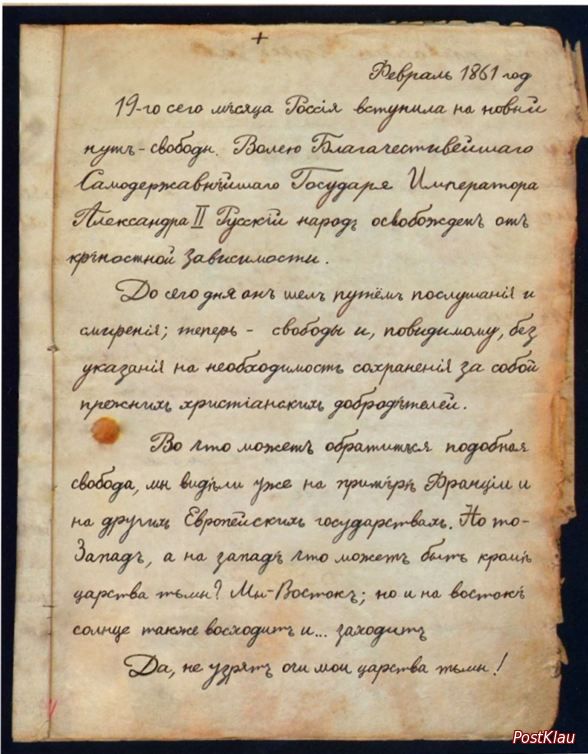 Февраль 1861 год
19-го сего мѣсяца Россія вступила на новый
путь - свободы. Волею Благачестивейшаго
Самодержавнѣйшаго Государя Императора
Александра II Русскій народъ освобожденъ отъ
крѣпостной зависимости.
До сего дня онъ шелъ путём послушанія и
смиренія; теперь - свободы и, повидимому, без
указанія на необходимость сохраненія за собой
прежнихъ христіанскихъ добродѣтелей.
Во что можетъ обратиться подобная
свобода, мы видѣли уже на примѣрѣ Франціи и
на другихъ Европейскихъ государствахъ. Но то-
Западъ, а на западѣ что можетъ быть кромѣ
царства тьмы? Мы-Востокъ; но и на востокѣ
солнце также восходитъ и... заходитъ
Да, не узрятъ очи мои царства тьмы!
PostKlau